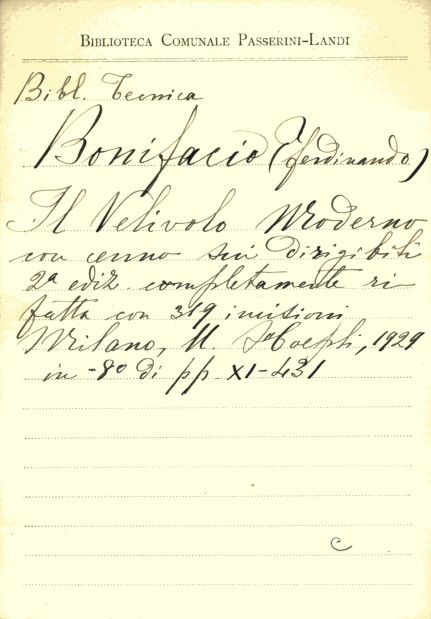 BIBLIOTECA COMUNALE PASSERINI-LANDI
Bibl. Tecnica
Bonifacio (Ferdinando)
Il Velivolo Moderno
con cenno sui dirigibili
2ª ediz. completamente ri
fatta con 319 incisioni
Milano, U. Hoepli, 1929
in -8º di pp. XI-431
C